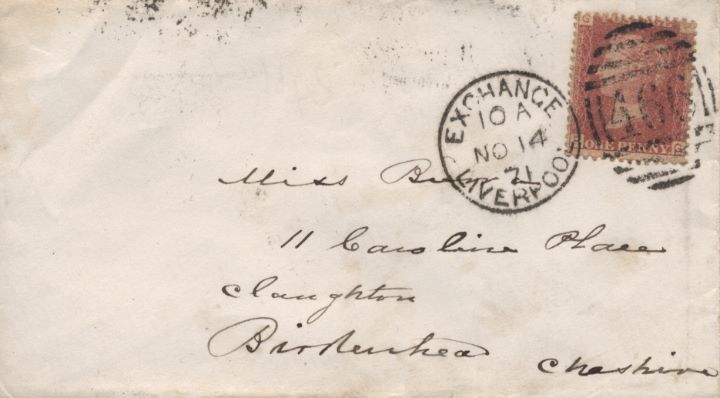 EXCHANGE
10 A
NO 14
71
LIVERPOOL
466
ONE PENNY
Miss
11 Caroline Place
Claughton
Birkenhead
Cheshire